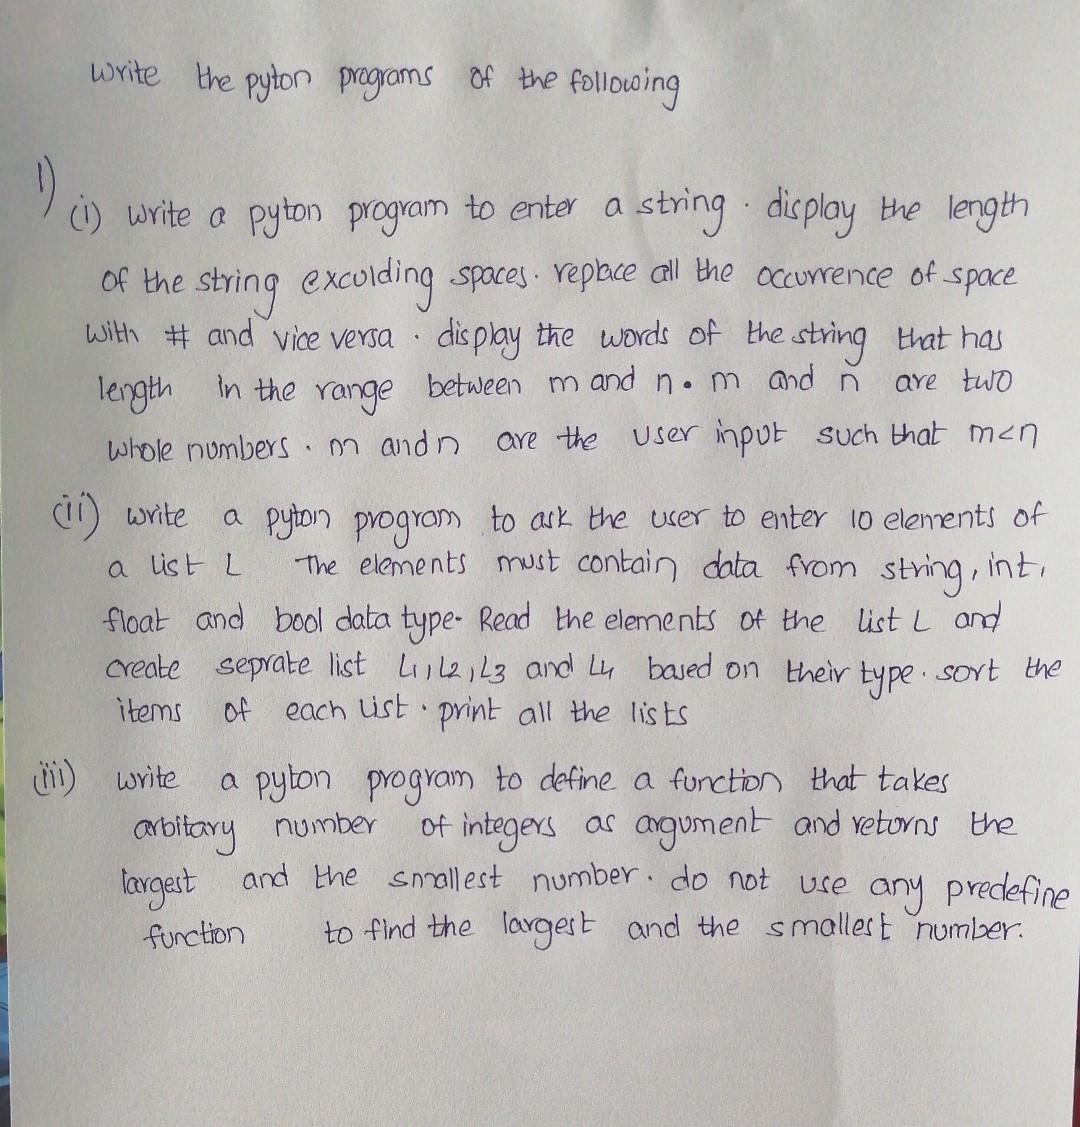 write the pyton programs of the following
1)
(i) write a pyton program to enter a string. display the length
of the string exculding spaces. replace all the occurrence of space
with # and vice versa. display the words of the string that has
length in the range between m and n. m and n are two
whole numbers. m and n are the user input such that m<n
(ii) write a pyton program to ask the user to enter 10 elements of
a list L The elements must contain data from string, int,
float and bool data type. Read the elements of the list L and
create seprate list L1, L2, L3 and L4 based on their type. sort the
items of each list. print all the lists
(iii) write a pyton program to define a function that takes
arbitary number of integers as argument and returns the
largest and the smallest number. do not use any predefine
function to find the largest and the smallest number.